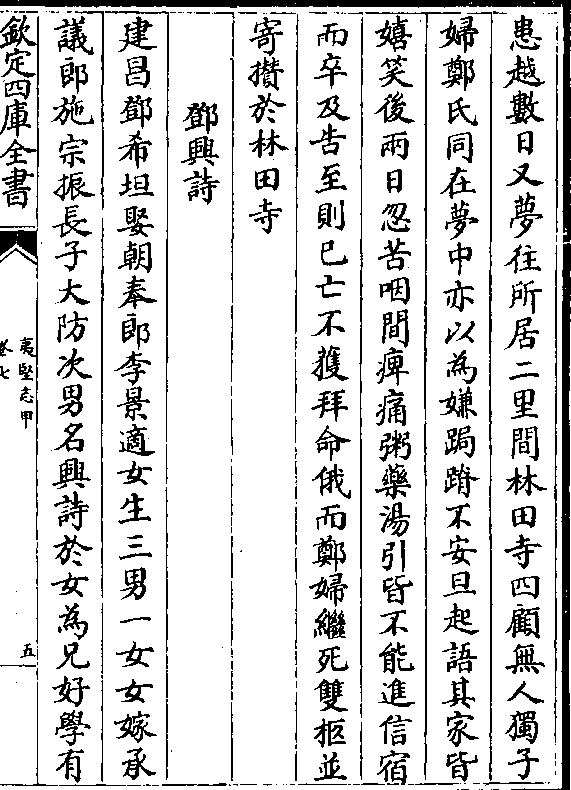 患越數日又夢往所居二里間林田寺四顧無人獨子
婦鄭氏同在夢中亦以為嫌跼蹐不安旦起語其家皆
嬉笑後兩日忽苦咽間痺痛粥藥湯引皆不能進信宿
而卒及告至則已亡不獲拜命俄而鄭婦繼死雙柩並
寄攢於林田寺
鄧興詩
建昌鄧希坦娶朝奉郎李景適女生三男一女女嫁承
議郎施宗振長子大防次男名興詩於女為兄好學有
欽定四庫全書
夷堅志甲
卷七
五